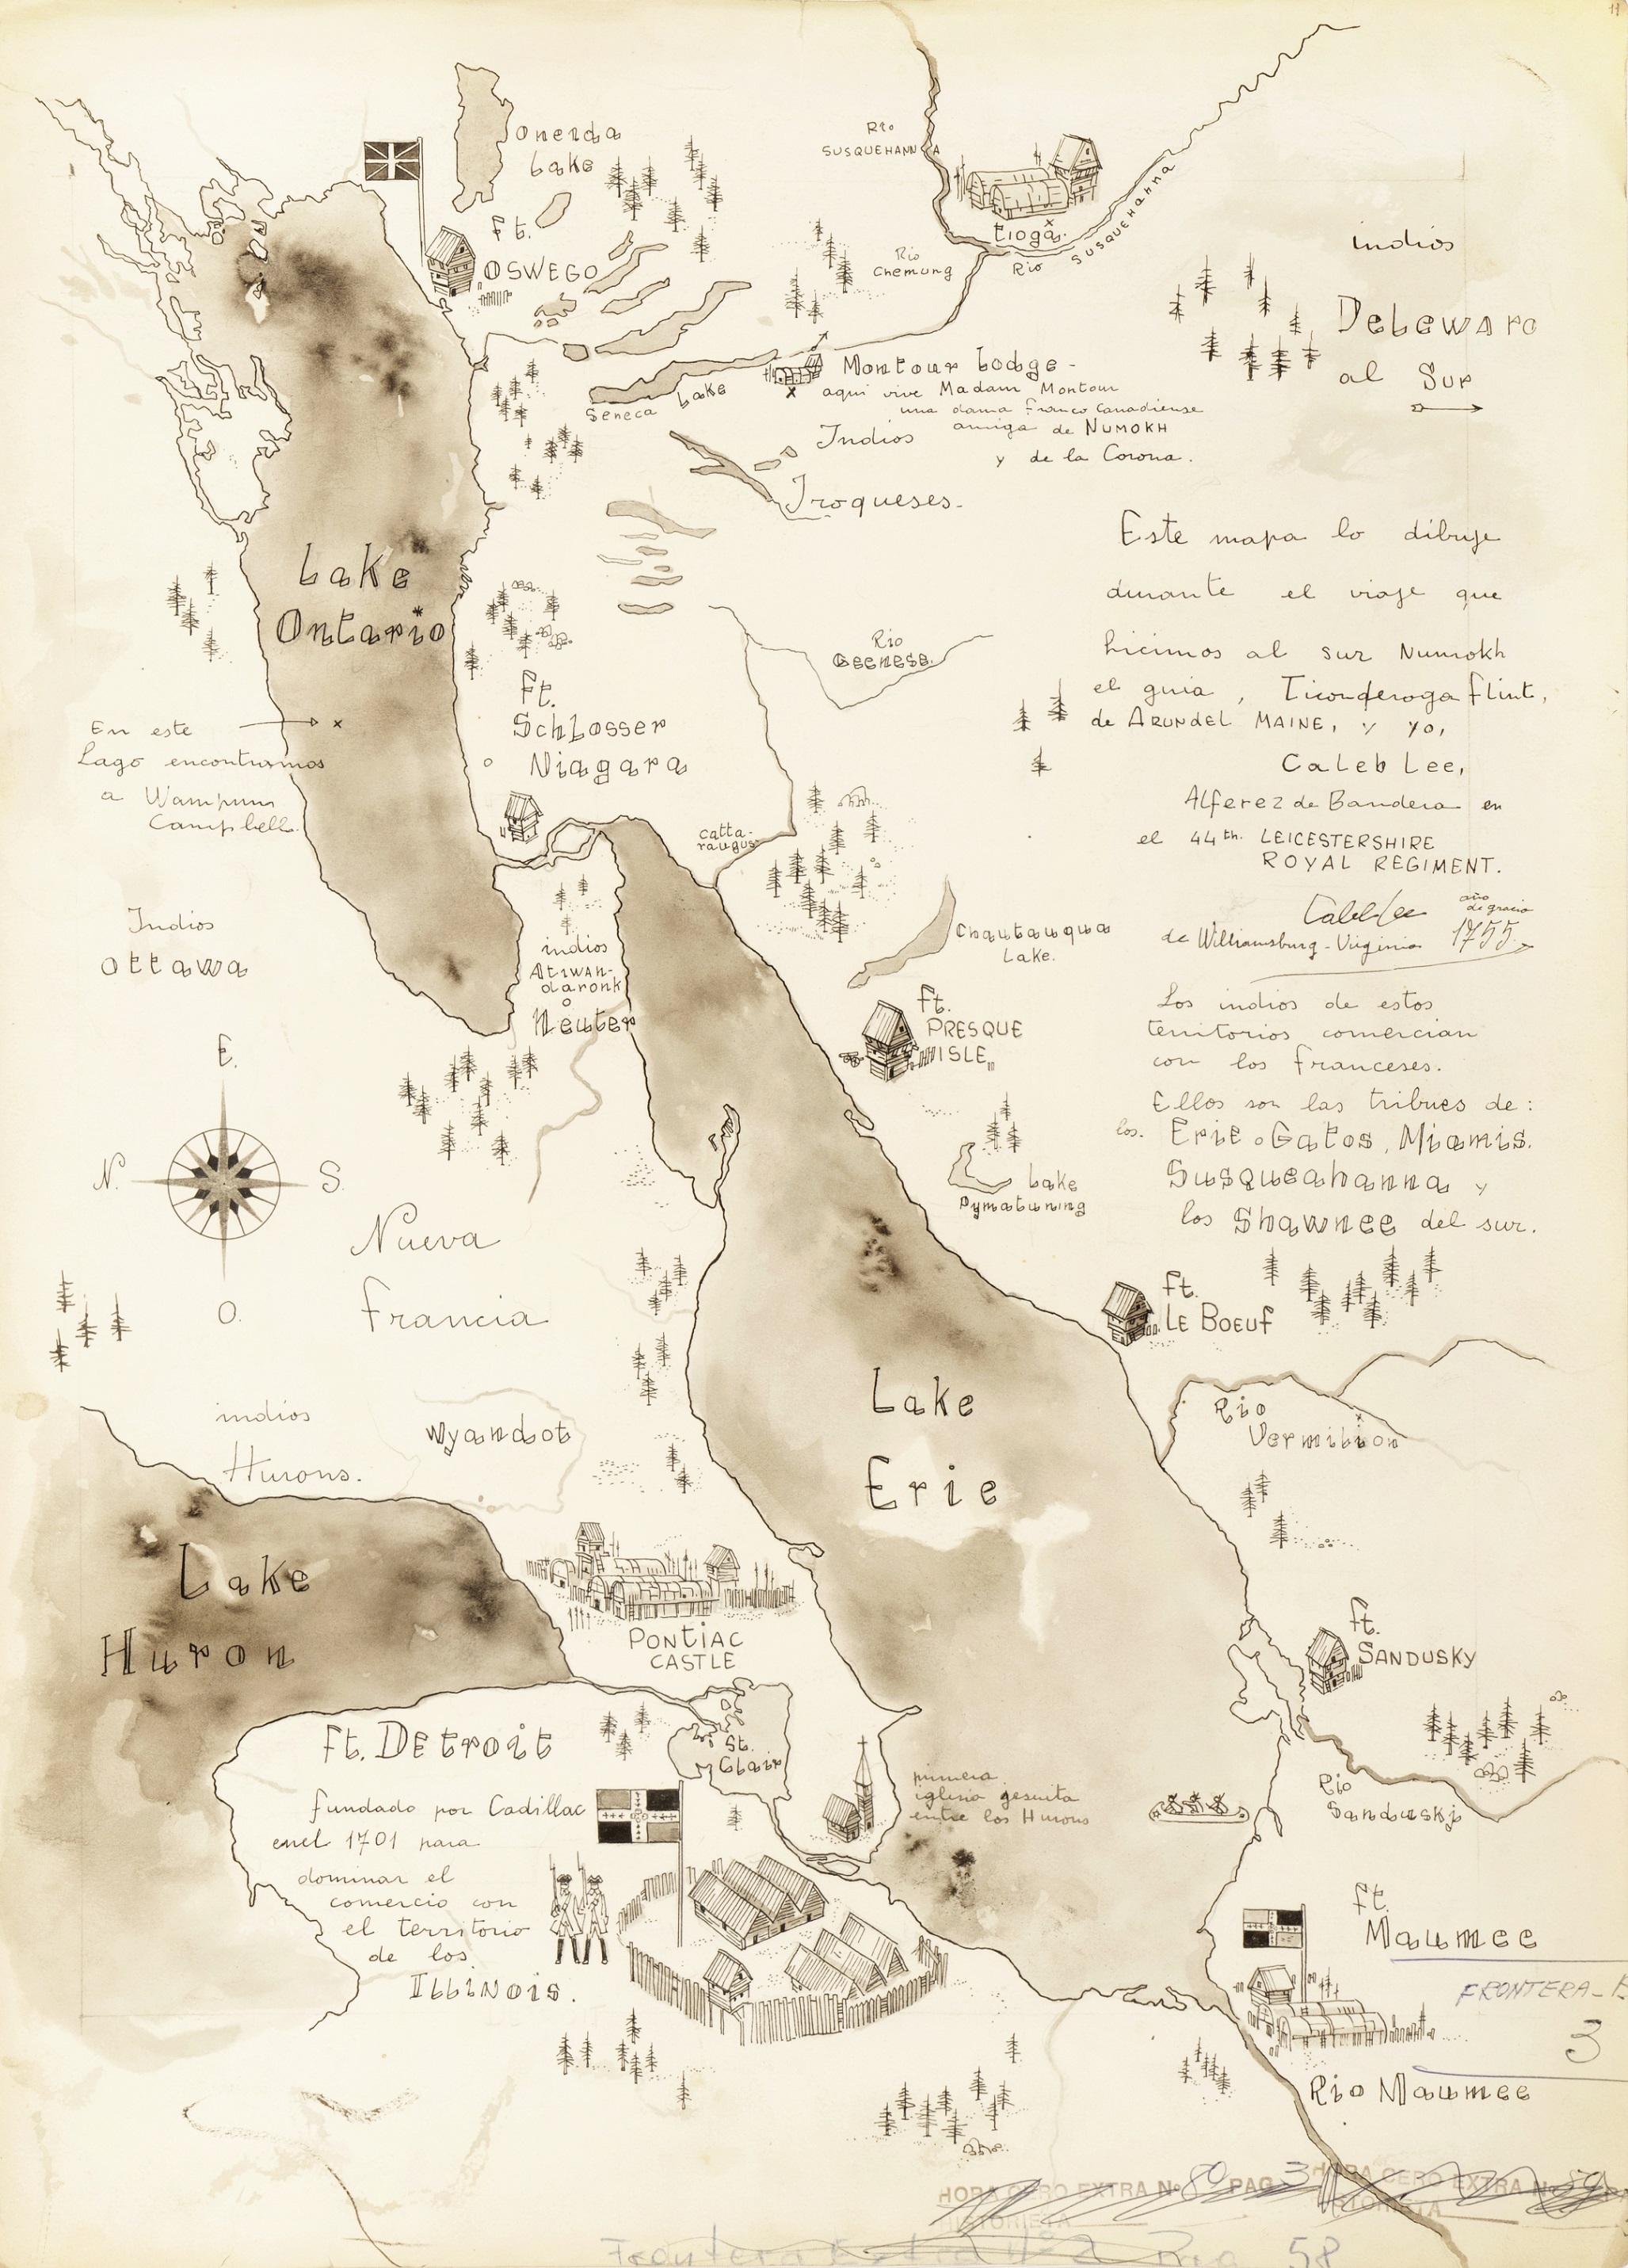 11
Oneida
Lake
ft.
OSWEGO
Rio
SUSQUEHANNA
tioga.
Rio SUSQUEHANNA
Rio
Chemung
indios
Deleware
al Sur
Seneca Lake
Montour Lodge -
aqui vive Madam Montour
una dama franco canadiense
amiga de NUMOKH
y de la Corona.
Indios
Iroqueses.
Lake
Ontario
Este mapa lo dibuje
durante el viaje que
hicimos al sur Numokh
el guia, Ticonderoga flint,
de ARUNDEL MAINE, y yo,
Caleb Lee,
Alferez de Bandera en
el 44th. LEICESTERSHIRE
ROYAL REGIMENT.
Caleb Lee
año
de gracia
de Williamsburg - Virginia 1755
Rio
Geenese.
ft.
Schlosser
Niagara
En este
Lago encontramos
a Wampum
Campbell.
catta-
raugus
Indios
Ottawa
indios
Atiwan-
daronk
o
Neuter
Chautauqua
Lake.
ft.
PRESQUE
ISLE
Los indios de estos
territorios comercian
con los franceses.
Ellos son las tribues de:
los. Erie o Gatos, Miamis.
Susqueahanna y
los Shawnee del sur.
E.
N.
S.
O.
Lake
Pymatuning
Nueva
francia
ft.
LE BOEUf
Lake
Erie
Rio
Vermilion
indios
Hurons.
Wyandot
Lake
Huron
PONTIAC
CASTLE
ft.
SANDUSKY
St.
Clair
ft. Detroit
fundado por Cadillac
en el 1701 para
dominar el
comercio con
el territorio
de los
ILLINOIS.
primera
iglesia jesuita
entre los Hurons
Rio
Sandusky
ft.
Maumee
FRONTERA - E
3
Rio Maumee
HORA CERO EXTRA Nº 80 PAG 3
HISTORIETA
HORA CERO EXTRA Nº 59
HISTORIETA
Frontera Extra Nº 2 Pag 58